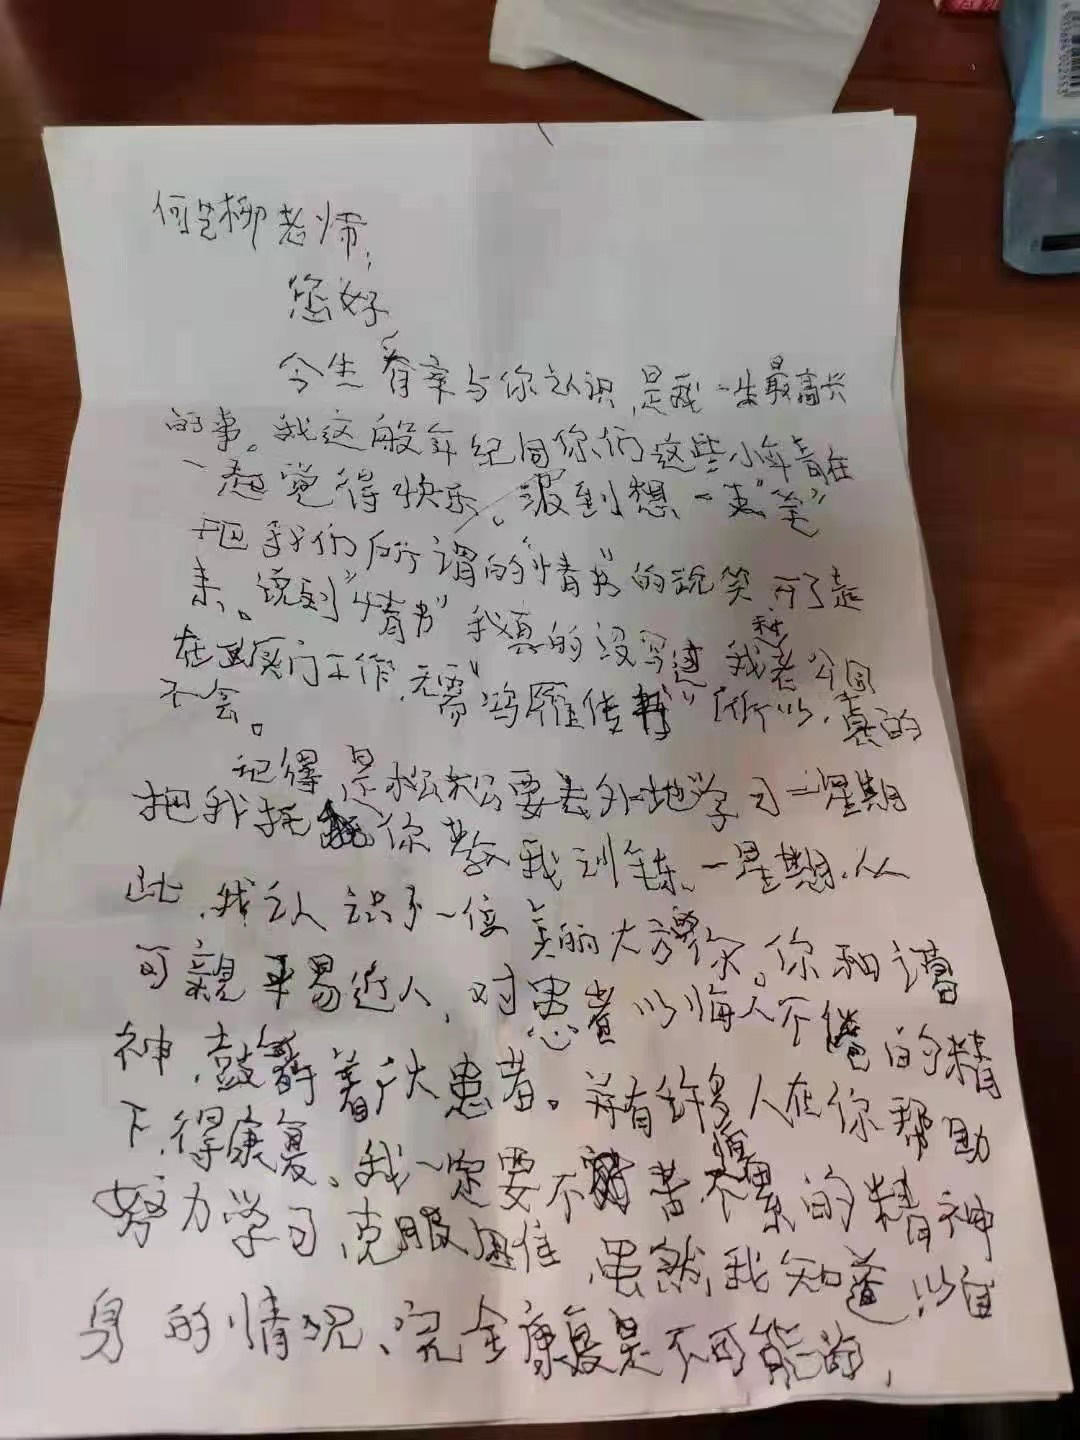 何芝柳老师,
您好
今生有幸与你认识,是我一生最高兴
的事。我这般年纪同你们这些小年青在
一起觉得快乐。没到想一支"笔"
把我们所谓的"情书"的说笑开了起
来。说到"情书"我真的没写过我和老公同
在厦门工作,无需"鸿雁传书"所以,真的
不会。
记得是松松要去外地学习一星期
把我托你教我训练一星期,从
此,我认识了一位美丽大方你。你和谒
可親平易近人,对患者以悔人不倦的精
神,鼓舞着广大患者。并有许多人在你帮助
下,得康复、我一定要不怕苦不怕累的精神
努力学习,克服困难,虽然,我知道,以自
身的情况、完全康复是不可能的,